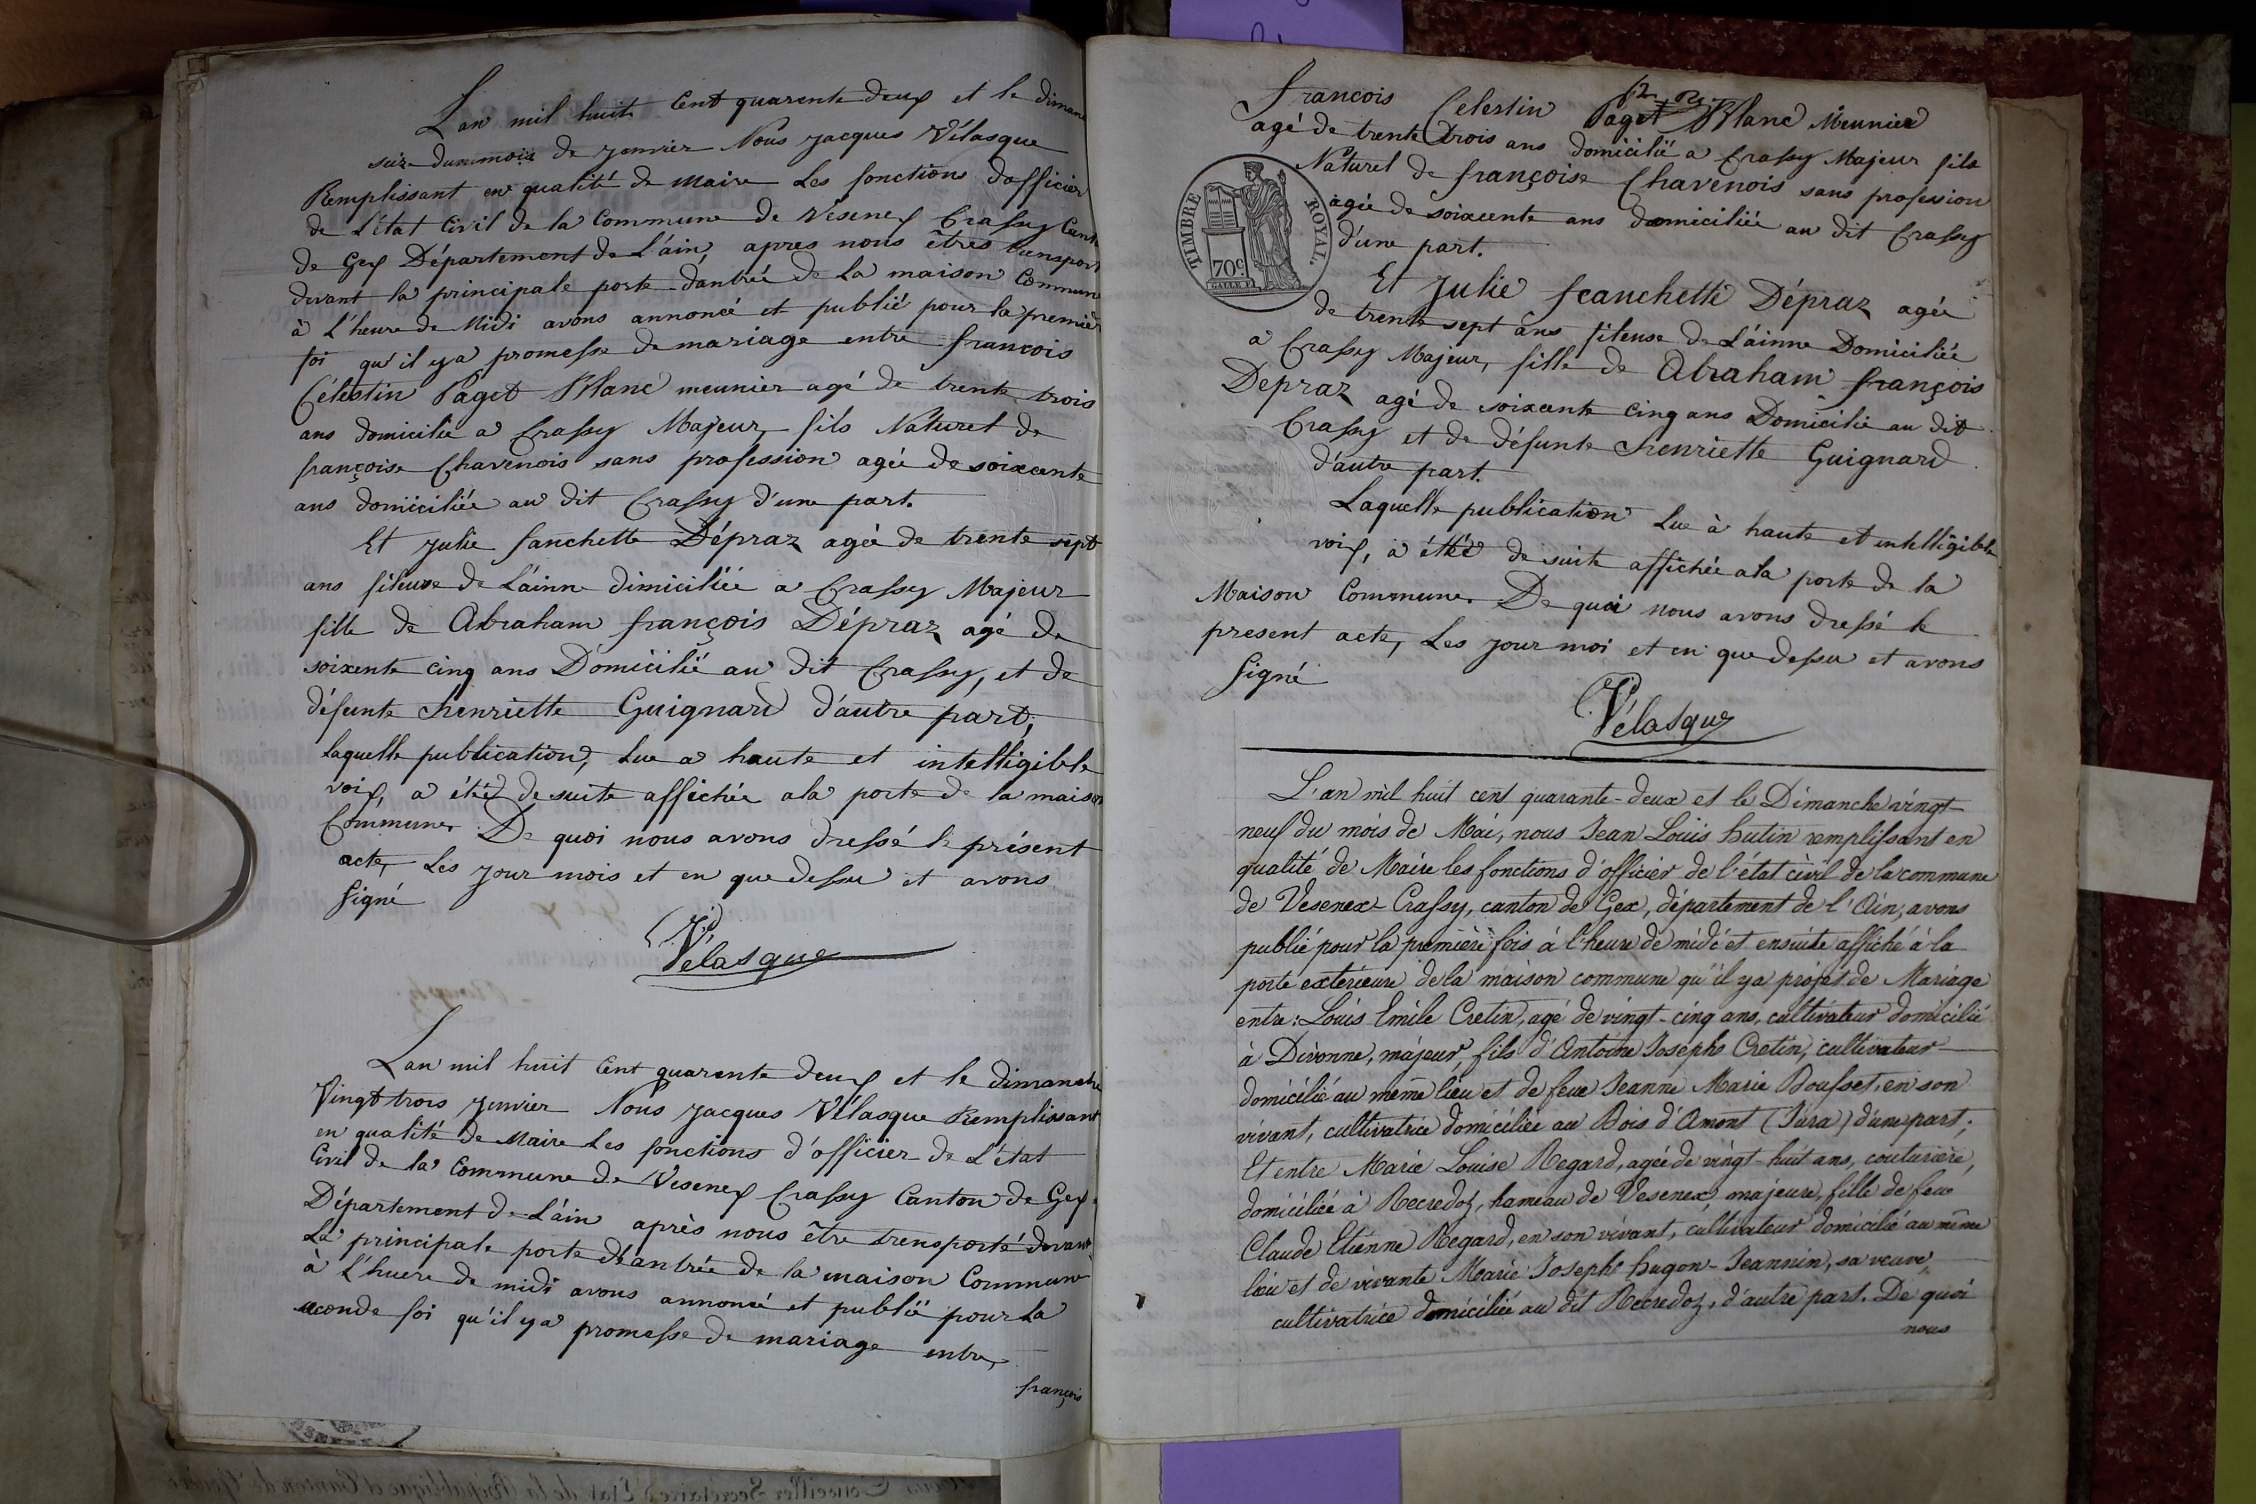 Lan mil huit Cent quarente deux et le diman
seize dummois de Janvier Nous Jacques Vélasque
Remplissant en qualité de Maire Les fonctions dofficier
de L'état Civil de la Commune de Vesenex Crassy Cant
de Gex Département de L'áin, apres nous êtres transport
devant la principale porte dantrée de La maison Commun
à L'heure de Midi avons annoncé et publié pour la premier
foi qu'il ya promesse de mariage entre françois
Célestin Paget Blanc meunier agé de trente trois
ans domicilié a Crassy Majeur fils Naturel de
françoise Chavenois sans profession agée de soixante
ans domiciliée au dit Crassy d'une part.
Et Julie fanchette Dépraz agée de trente sept
ans fileuse de Láinne dimiciliée a Crassy Majeur
fille de Abraham françois Dépraz agé de
soixente cinq ans Domicilié au dit Crassy, et de
défunte henriette Guignard d'autre part;
Laquelle publication, Lue a haute et intelligible
voix, a été de suite affichée ala porte de la maison
Commune. De quoi nous avons dressé le présent
acte, Les jour mois et en que dessu et avons
signé
Vélasque
Lan mil huit Cent quarente deux et le dimanche
Vingt trois Janvier Nous Jacques Vélasque Remplissant
en qualité de Maire Les fonctions d'officier de L'état
Civil de la Commune de Vesenex Crassy Canton de Gex
Département de L'áin après nous être transporté devant
La principale porte d'antrée de la maison Commune
à L'huere de midi avons annoncé et publié pour la
seconde foi qu'il ya promesse de mariage entre,
françois
francois Celestin Paget Blanc Meunier
agé de trente trois ans domicilié a Crassy Majeur fils
Naturel de françoise Chavenois sans profession
agée de soixcente ans domiciliée au dit Crassy
d'une part.
TIMBRE ROYAL.
70c
Et Julie feanchette Dépraz agée
de trente sept ans fileuse de Láinne Domiciliée
a Crassy Majeur, fille de Abraham françois
Depraz agé de soixcente cinq ans Domicilié au dit
Crassy et de défunte henriette Guignard
d'autre part.
Laquelle publication Lue à haute et intelligible
voix, a été de suite affichée ala porte de la
Maison Commune. De quoi nous avons dressé le
present acte, Les jour moi et en que dessu et avons
signé
Vélasque
L'an mil huit cent quarante-deux et le Dimanche vingt-
neuf du mois de Mai, nous Jean Louis hutin remplissant en
qualité de Maire les fonctions d'officier de l'état civil de la commune
de Vesenex-Crassy, canton de Gex, département de l'Ain, avons
publié pour la première fois à l'heure de midi et ensuite affiché à la
porte extérieure de la maison commune qu'il ya projet de Mariage
entre: Louis Emile Cretin, agé de vingt-cinq ans, cultivateur domicilié
à Divonne, majeur, fils d'Antoine Joseph Cretin, cultivateur
domicilié au même lieu et de feue Jeanne Marie Bousset, en son
vivant, cultivatrice domiciliée au Bois d'Amont (Jura) d'une part;
Et entre Marie Louise Regard, agée de vingt-huit ans, couturière,
domiciliée à Recredoz, hameau de Vesenex, majeure, fille de feu
Claude Etienne Regard, en son vivant, cultivateur domicilié au même
lieu et de vivante Marie Josephe hugon-Jeannin, sa veuve,
cultivatrice domiciliée au dit Recredoz, d'autre part. De quoi
nous